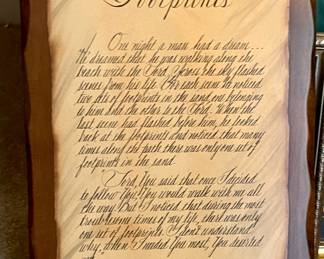 Footprints
One night a man had a dream...
He dreamed that he was walking along the
beach with the Lord. Across the sky flashed
scenes from his life. For each scene he noticed
two sets of footprints in the sand, one belonging
to him and the other to the Lord. When the
last scene had flashed before him, he looked
back at the footprints and noticed that many
times along the path there was only one set of
footprints in the sand.
"Lord, You said that once I decided
to follow You, You would walk with me all
the way. But I noticed that during the most
troublesome times of my life, there was only
one set of footprints. I don't understand
why, when I needed You most, You deserted